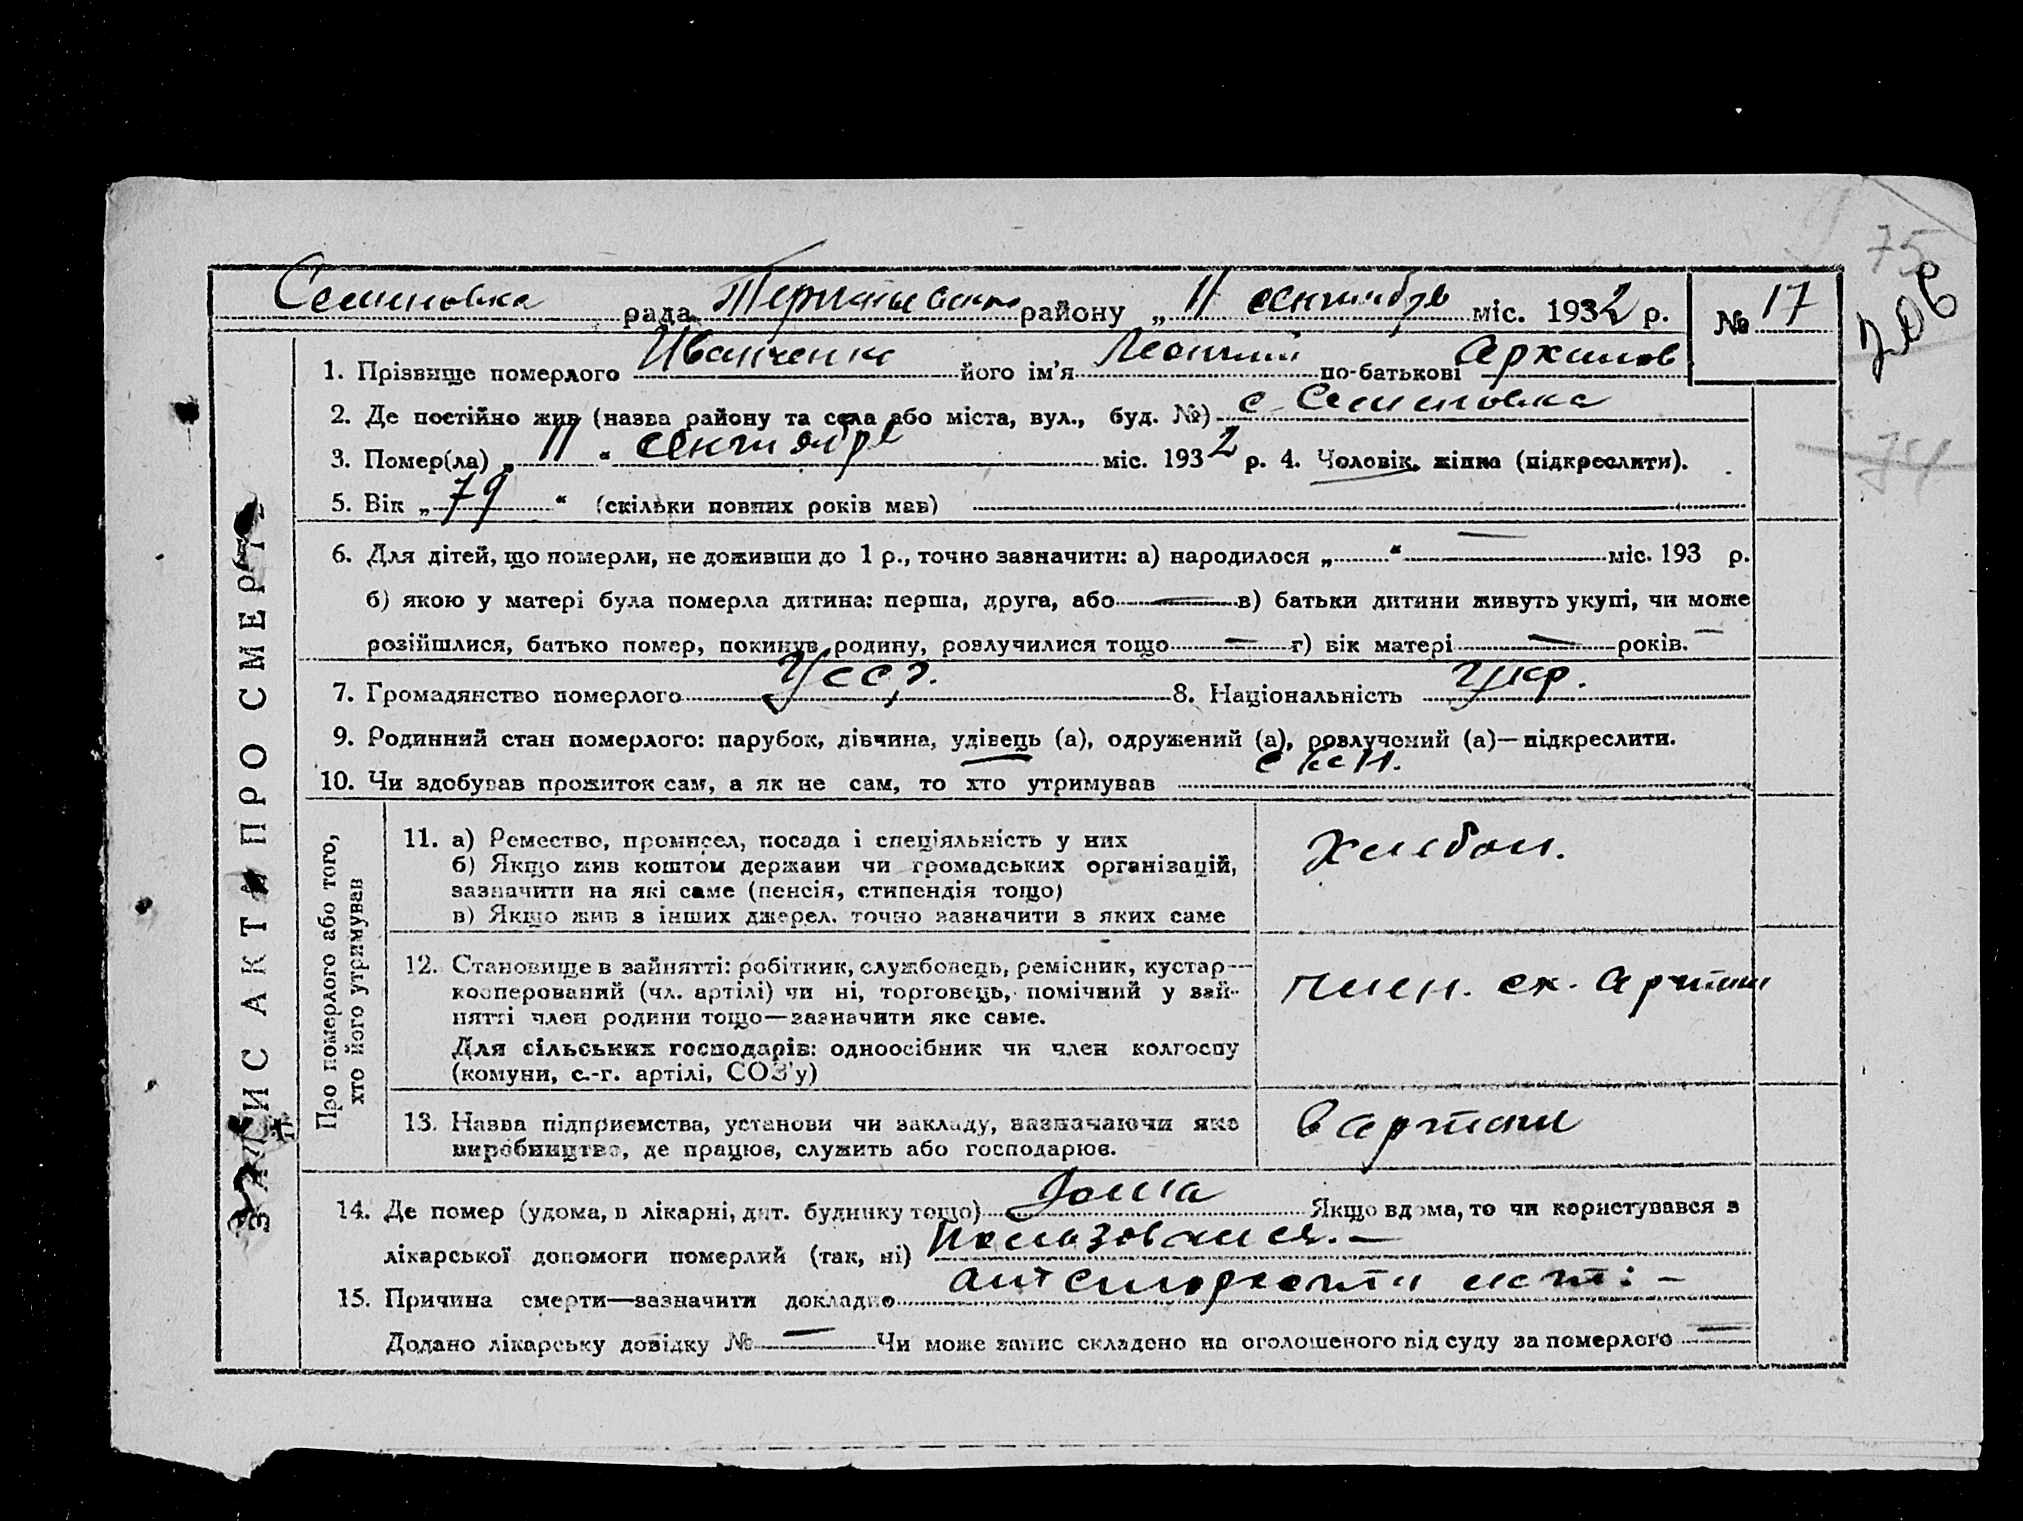 75
206
Семеновка рада района району „ 11 сентября міс. 1932 р. № 17
1. Прізвище померлого Иванченко його ім'я Леонтий по-батькові Архипов
2. Де постійно жив (назва району та села або міста, вул., буд. №) с Семеновка
3. Помер(ла) „ 11 “ сентября міс. 1932 р. 4. Чоловік, жінка (підкреслити).
74
5. Вік „ 79 “ (скільки повних років мав)
6. Для дітей, що померли, не доживши до 1 р., точно зазначити: а) народилося „ “ — міс. 193 р.
б) якою у матері була померла дитина: перша, друга, або — в) батьки дитини живуть укупі, чи може
розійшлися, батько помер, покинув родину, розлучилися тощо — г) вік матері — років. —
7. Громадянство померлого УССР. 8. Національність Укр.
9. Родинний стан померлого: парубок, дівчина, удівець (а), одружений (а), розлучений (а)—підкреслити.
10. Чи здобував прожиток сам, а як не сам, то хто утримував
ЗАПИС АКТА ПРО СМЕРТЬ
Про померлого або того,
хто його утримував
11. а) Ремество, промисел, посада і спеціяльність у них
б) Якщо жив коштом держави чи громадських організацій,
зазначити на які саме (пенсія, стипендія тощо)
в) Якщо жив з інших джерел. точно зазначити з яких саме
хлебоп.
12. Становище в зайнятті: робітник, службовець, ремісник, кустар—
кооперований (чл. артілі) чи ні, торговець, помічний у зай-
нятті член родини тощо—зазначити яке саме.
Для сільських господарів: одноосібник чи член колгоспу
(комуни, с.-г. артілі, СОЗ'у)
член. ск. артели
13. Назва підприємства, установи чи закладу, зазначаючи яке
виробництво, де працює, служить або господарює.
в артели
14. Де помер (удома, в лікарні, дит. будинку тощо) дома Якщо вдома, то чи користувався з
лікарської допомоги померлий (так, ні) ползовался. —
15. Причина смерти—зазначити докладно
Додано лікарську довідку № — Чи може запис складено на оголошеного від суду за померлого —